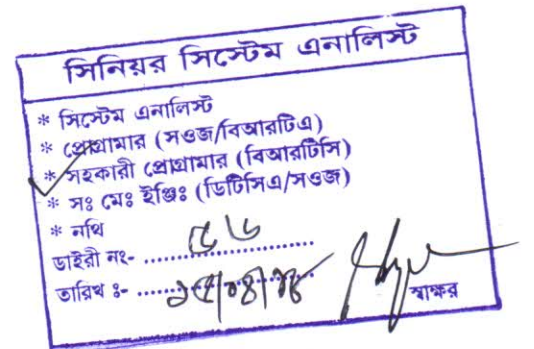 সিনিয়র সিস্টেম এনালিস্ট
* সিস্টেম এনালিস্ট
* প্রোগ্রামার (সওজ/বিআরটিএ)
* সহকারী প্রোগ্রামার (বিআরটিসি)
* সঃ মেঃ ইঞ্জিঃ (ডিটিসিএ/সওজ)
* নথি
ডাইরী নং- ৫৬
তারিখ ঃ- ১৫/০৪/১৮
স্বাক্ষর